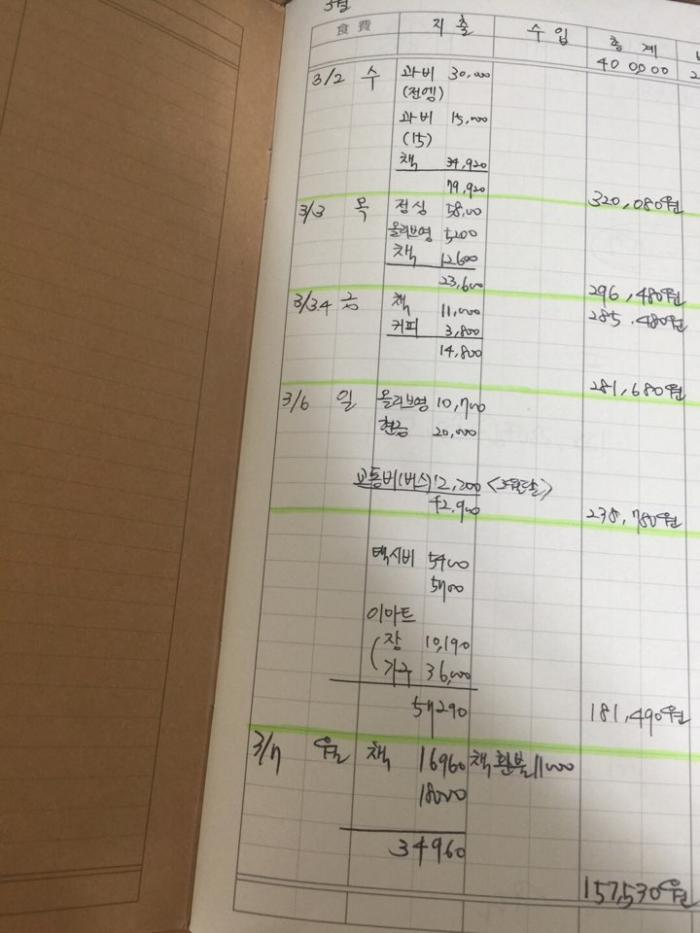 3월
食費 지출 수입 총계
40 0,000
3/2 수 과비 30,000
(전엠)
과비 15,000
(15)
책 34,920
79,920
320,080원
3/3 목 점심 58,00
올리브영 5,200
책 12600
23,600
296,480원
3/3.4 금 책 11,000
285,480원
커피 3,800
14,800
281,680원
3/6 일 올리브영 10,700
현금 20,000
교통비(버스) 12,200 <3월달>
42,900
238,780원
택시비 5400
5700
이마트
(장 10,190
가구 36,000
57290
181,490원
3/7 월 책 16960 책 환불 11000
18000
34960
157,530원